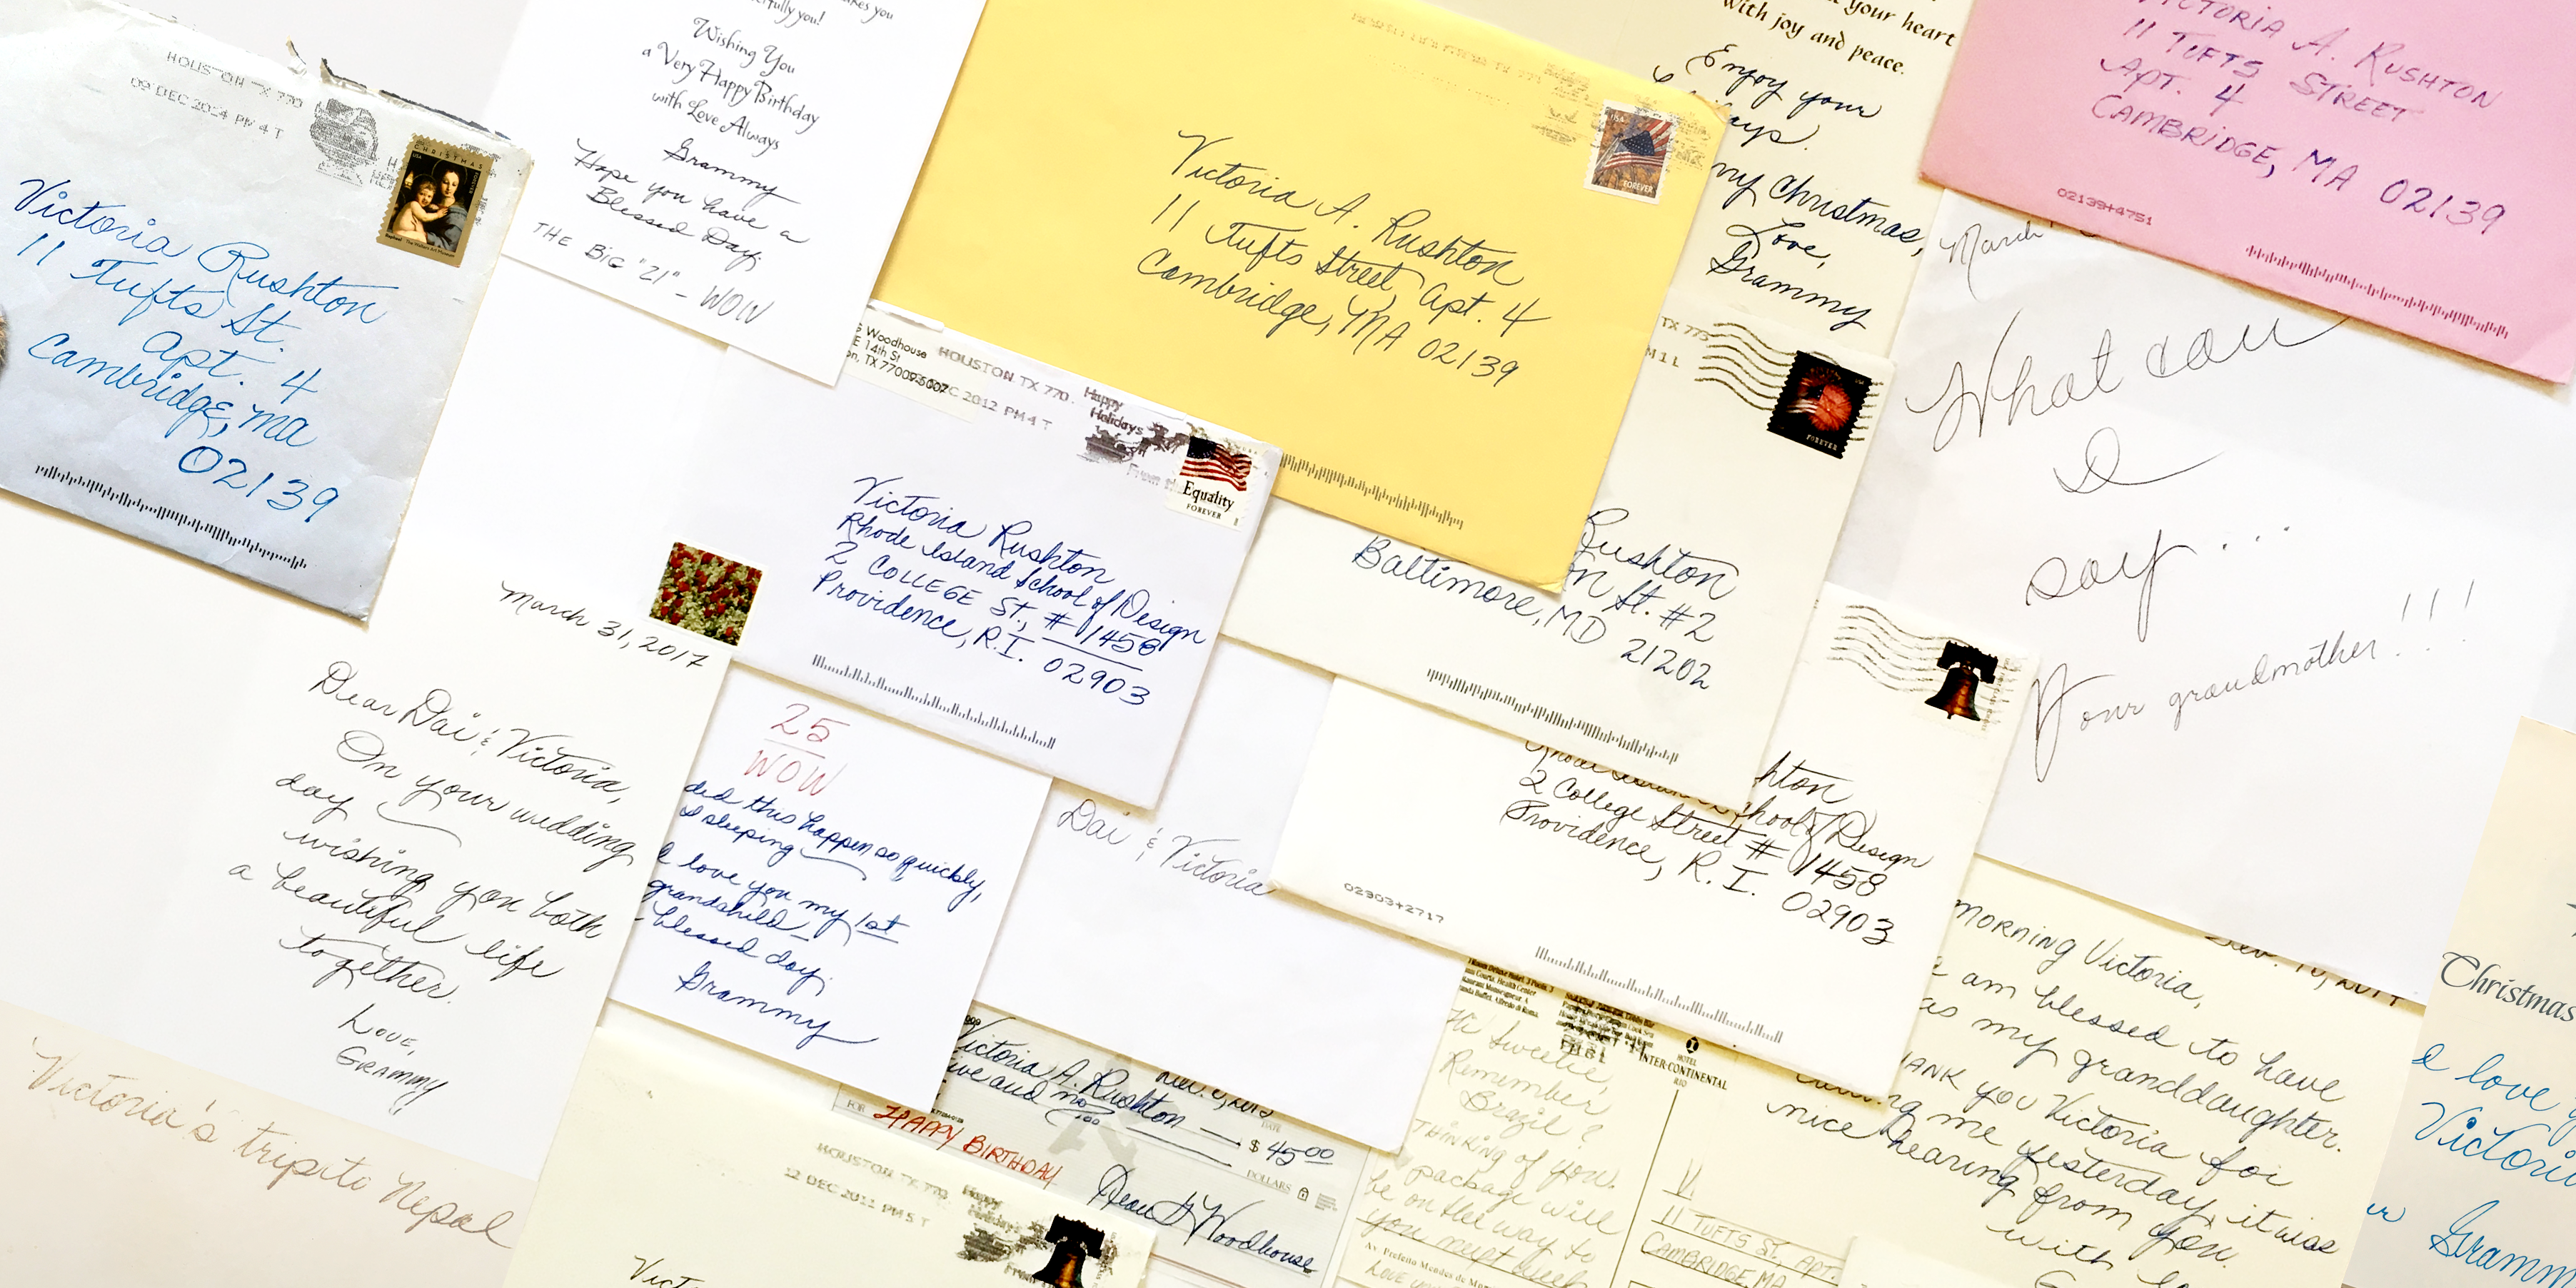 HOUSTON TX 770
09 DEC 2014 PM 4 T
CHRISTMAS
USA
Victoria Rushton
11 Tufts St.
Apt. 4
Cambridge, MA
02139
Wishing You
a Very Happy Birthday
with Love Always
Grammy
Hope you have a
Blessed Day.
THE BIG "21" - WOW
USA
FOREVER
Victoria A. Rushton
11 Tufts Street Apt. 4
Cambridge, MA 02139
your heart
with joy and peace.
Enjoy your
my Christmas,
Love,
Grammy
VICTORIA A. RUSHTON
11 TUFTS STREET
APT. 4
CAMBRIDGE, MA 02139
02139+4751
March
What can
I
say...
Your grandmother!!!
Woodhouse
E 14th St
on, TX 77009
HOUSTON TX 770
DEC 2012 PM 4 T
Happy
Holidays
Equality
FOREVER
Victoria Rushton
Rhode Island School of Design
2 COLLEGE ST., # 1458
Providence, R.I. 02903
TX 773
FOREVER
Rushton
on St. #2
Baltimore, MD 21202
March 31, 2017
Dear Dai & Victoria,
On your wedding
day
wishing you both
a beautiful life
together.
Love,
Grammy
25
WOW
did this happen so quickly,
sleeping
I love you my 1st
grandchild
blessed day.
Grammy
Dai & Victoria
hton
School of Design
2 College Street # 1458
Providence, R.I. 02903
02903+2717
MORNING Victoria,
I am blessed to have
as my granddaughter.
THANK YOU Victoria for
calling me yesterday, it was
nice hearing from you.
with
Christmas
I love
Victoria
Grammy
Victoria's trip to Nepal
Victoria A. Rushton
$ 45.00
five and no/100
DOLLARS
FOR HAPPY BIRTHDAY
Dean G Woodhouse
HOUSTON TX 770
12 DEC 2011 PM 5 T
Happy
Holidays
Vict
HOTEL
INTER-CONTINENTAL
RIO
Hi Sweetie,
Remember
Brazil?
THINKING of you.
package will
be on the way to
you next week
Av. Prefeito Mendes de Mo
LOVE
V.
11 TUFTS ST, APT.
CAMBRIDGE, MA